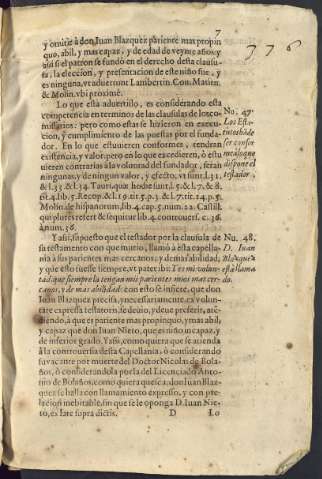 7
776
y omitiò à don Iuan Blazquez pariente mas propin
quo, abil, y mas capaz, y de edad de veynte años, y
assi si el patron se fundò en el derecho desta clausu-
la, la eleccion, y presentacion de este niño fue, y
es ninguna, vt aduertunt Lambertin. Con. Matien.
& Molin. vbi proximè.
Lo que esta aduertido, es considerando esta
competencia en terminos de las clausulas de los co-
missarios: pero como estas se hizieron en execu-
cion, y cumplimiento de las puestas por el funda-
dor. En lo que estuuieren conformes, tendran
existencia, y valor: pero en lo que excedieren, ò estu
uieren contrarias à la voluntad del fundador, seràn
ningunas, y de ningun valor, y efecto, vt sunt, l. 31.
& l. 33. & l. 34. Tauri, quæ hodie sunt, l. 5. & l. 7. & 8.
tit. 4. lib. 5. Recop. & l. 11. tit. 5. p. 5. & l. 7. tit. 14. p. 5.
Molin. de hispanorum, lib. 4. cap. 5. num. 22. Castill.
qui plures refert & sequitur lib. 4. controuers. c. 36.
à num. 36.
Nu. 47
Los Esta-
tutos hã de
ser confor
me à lo que
dispone el
testador.
Y assi, supuesto que el testador por la clausula de
su testamento con que murio, llamò à esta capella-
nia à sus parientes mas cercanos, y de mas abilidad;
y que esto fuesse siempre, vt patet ibi: Y es mi volun-
tad que siempre la tengan mis parientes mios mas cer-
canos, y de mas abilidad: con esto se infiere, que don
Iuan Blazquez precisa, y necessariamente, ex volun-
tate expressa testatoris, se deuio, y deue preferir, aten-
diendo, à que es pariente mas propinquo, y mas abil,
y capaz que don Iuan Nieto, que es niño incapaz, y
de inferior grado. Y assi, como quiera que se atienda
à la controuersia desta Capellania, ò considerando
su vacante por muerte del Doctor Nicolas de Bola-
ños, ò considerandola por la del Licenciado Anto-
nio de Bolaños, como quiera que sea, don Iuan Blaz
quez se halla con llamamiento expresso, y con pre-
lacion ineuitable, sin que se le oponga D. Iuan Nie-
to, ex late supra dictis.
Nu. 48.
D. Iuan
Blazquez
està llama
do.
D
Lo